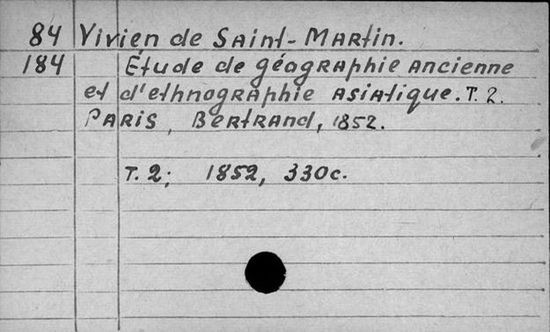 84 Vivien de Saint-Martin.
184 Étude de géographie ancienne
et d'ethnographie asiatique. T. 2.
Paris, Bertrand, 1852.
T. 2; 1852, 330c.